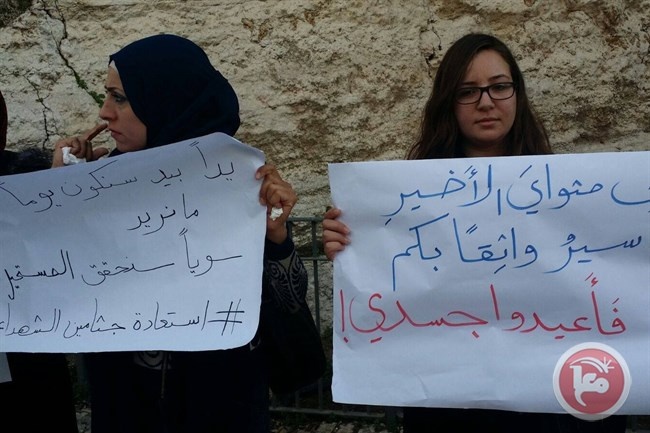 يداً بيد سنكون يوماً
ما نريد
سوياً سنحقق المستحيل
#استعادة جثامين الشهداء
مثوايَ الأخيرِ
سيرُ واثِقاً بكم
فَأَعيدوا جسدي!
معا